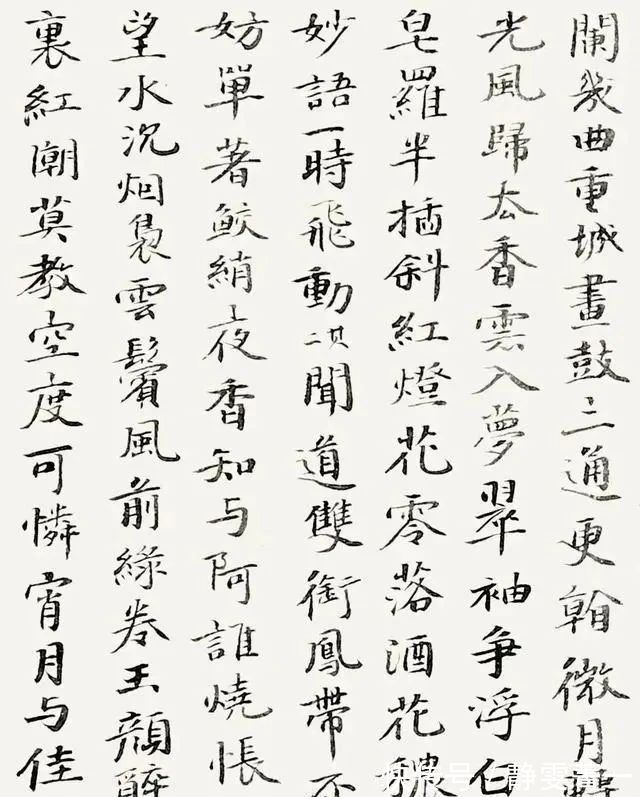 闌幾曲重城畫鼓三通更看微月
光風歸去香雲入夢翠袖爭浮
皂羅半插斜紅燈花零落酒花
妙語一時飛動其二聞道雙銜鳳帶不
妨單著鮫綃夜香知与阿誰燒悵
望水沉烟裊雲鬢風前綠卷玉顏醉
裏紅潮莫教空度可憐宵月与佳